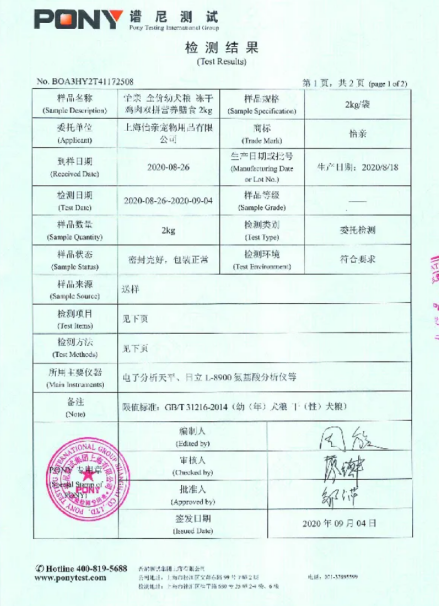 PONY 谱尼测试
Pony Testing International Group
检测结果
(Test Results)
No. BOA3HY2T41172508 第1页，共2页 (page 1 of 2)
样品名称 (Sample Description) 怡亲 全价幼犬粮 冻干鸡肉双拼营养膳食 2kg 样品规格 (Sample Specification) 2kg/袋
委托单位 (Applicant) 上海怡亲宠物用品有限公司 商标 (Trade Mark) 怡亲
到样日期 (Received Date) 2020-08-26 生产日期或批号 (Manufacturing Date or Lot No.) 生产日期：2020/8/18
检测日期 (Test Date) 2020-08-26~2020-09-04 样品等级 (Sample Grade) ——
样品数量 (Sample Quantity) 2kg 检测类别 (Test Type) 委托检测
样品状态 (Sample Status) 密封完好，包装正常 检测环境 (Test Environment) 符合要求
样品来源 (Sample Source) 送样
检测项目 (Test Items) 见下页
检测方法 (Test Methods) 见下页
所用主要仪器 (Main Instruments) 电子分析天平、日立 L-8900 氨基酸分析仪等
备注 (Note) 限值标准：GB/T 31216-2014（幼（年）犬粮 干（性）犬粮）
编制人 (Edited by)
审核人 (Checked by)
批准人 (Approved by)
签发日期 (Issued Date) 2020年09月04日
PONY
Hotline 400-819-5688
www.ponytest.com